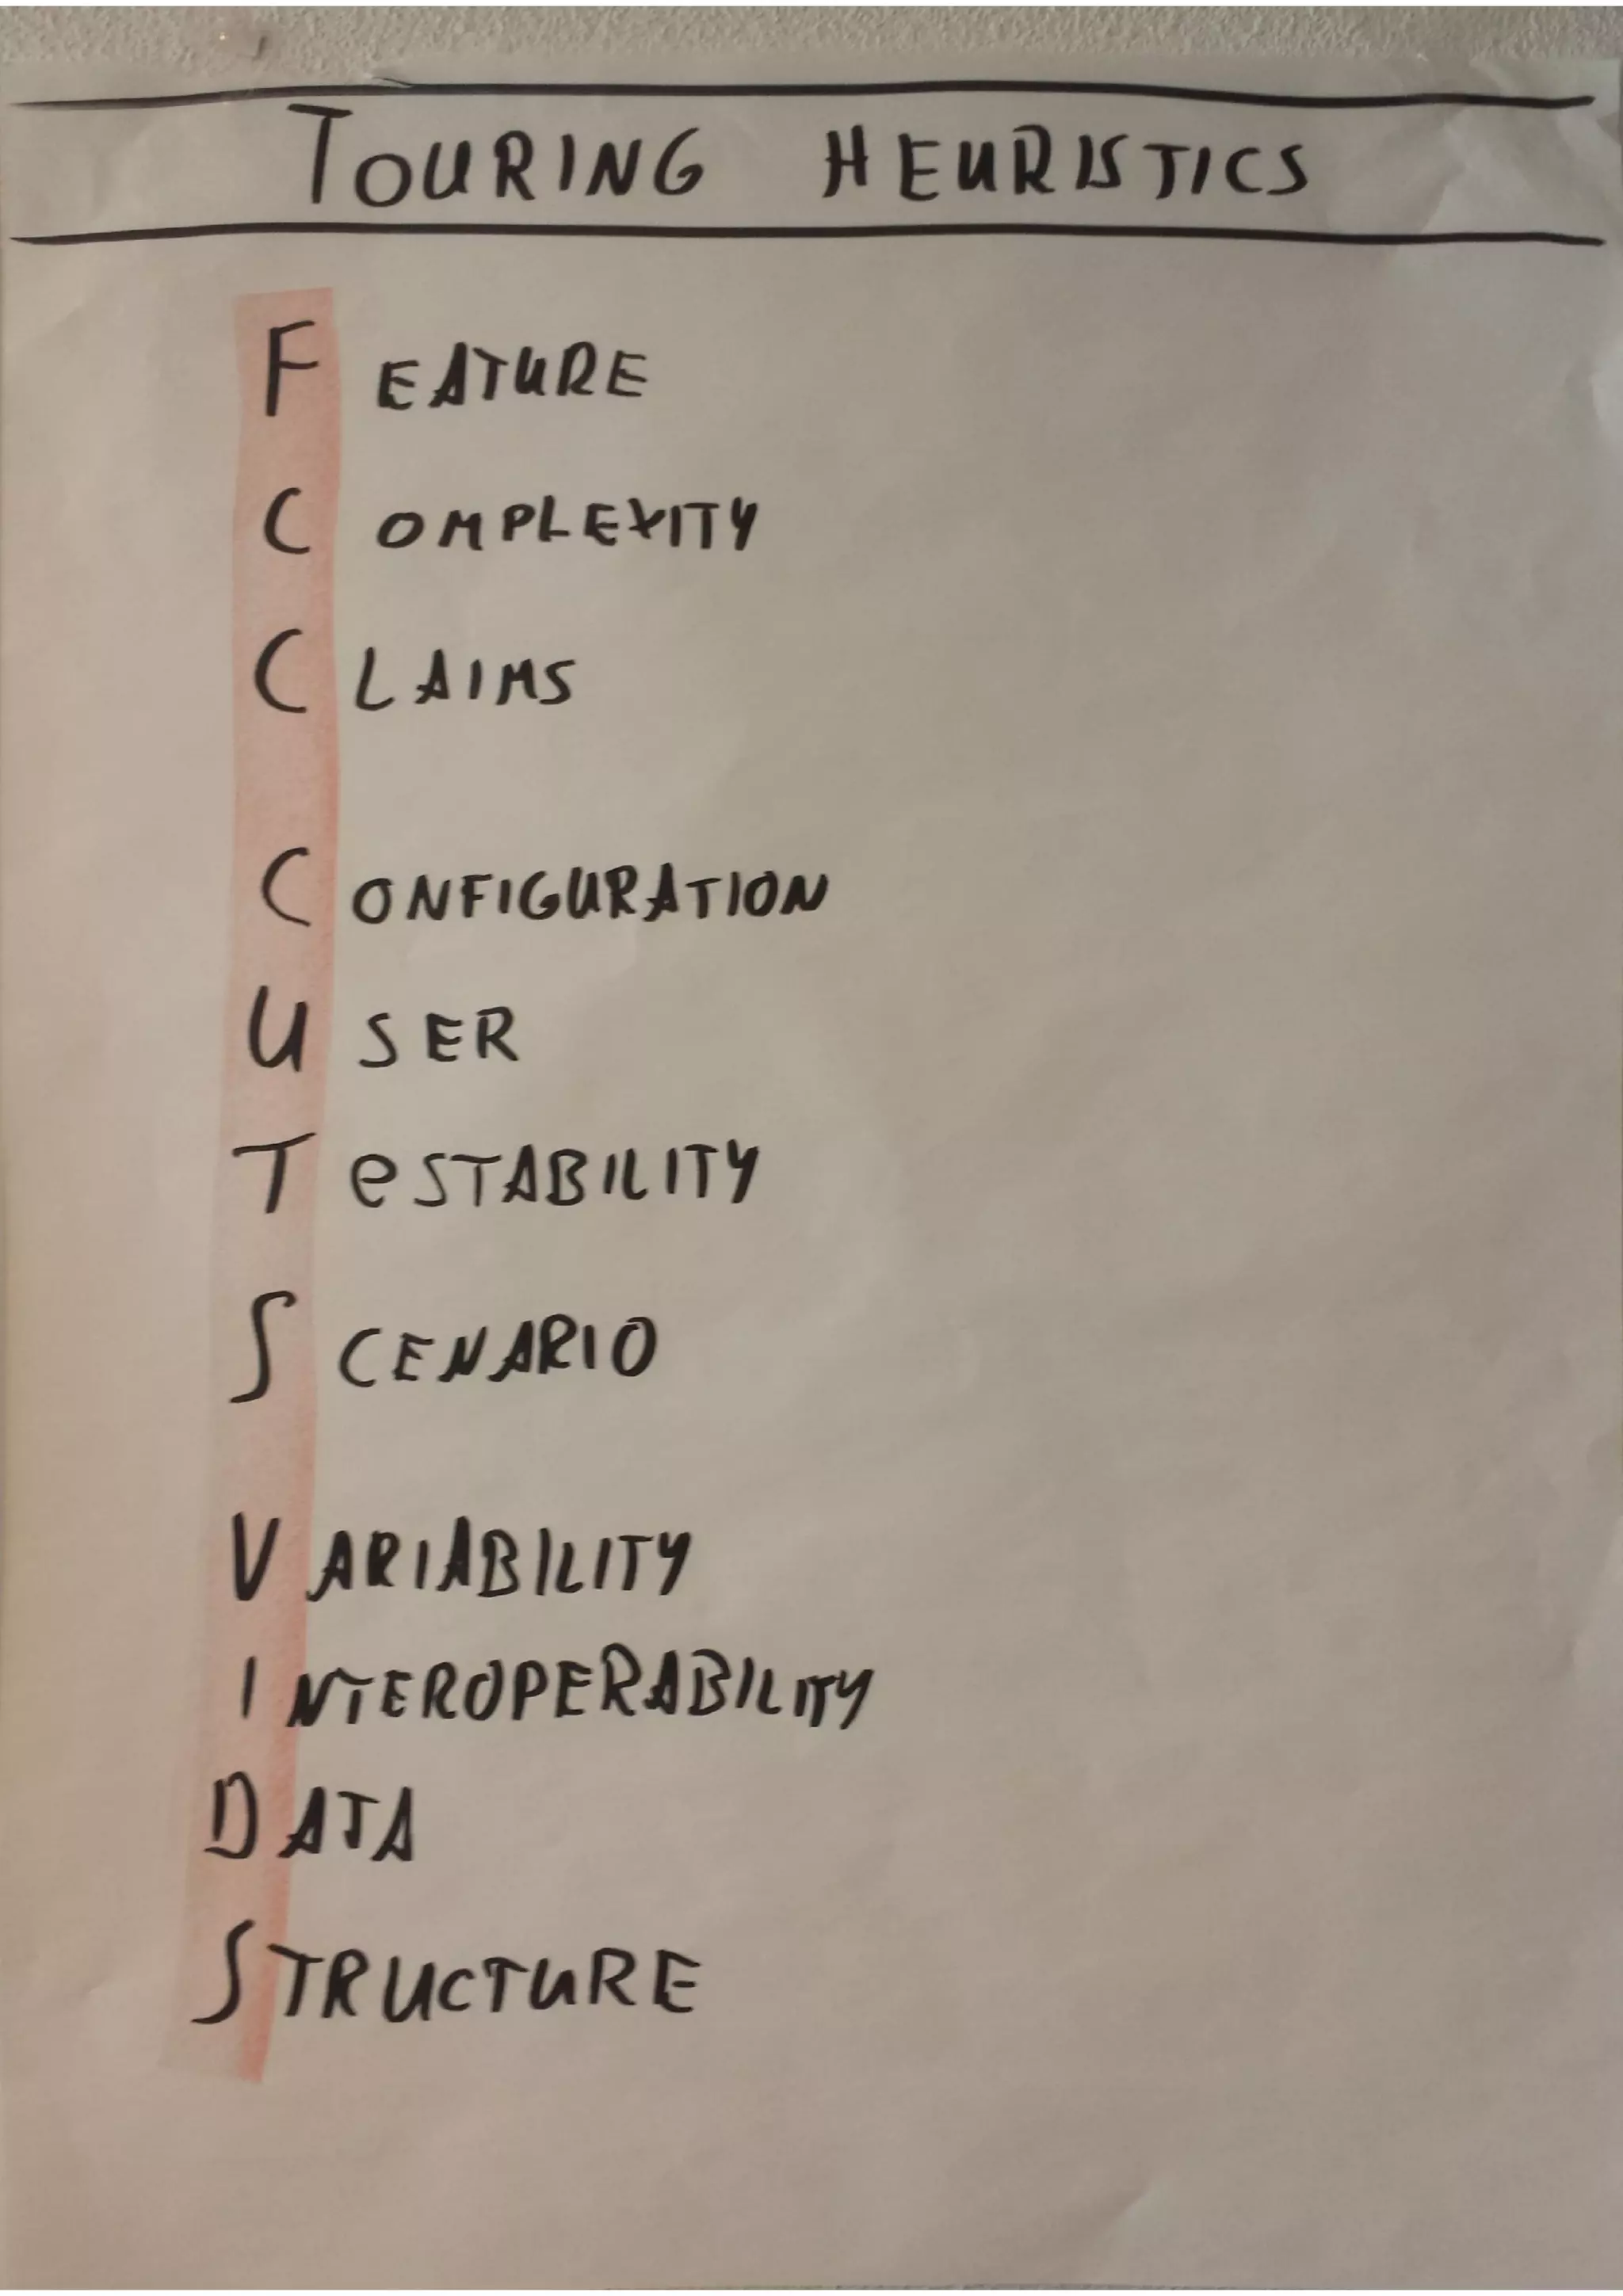 TOURING HEURISTICS
FEATURE
COMPLEXITY
CLAIMS
CONFIGURATION
USER
TeSTABILITY
SCENARIO
VARIABILITY
INTEROPERABILITY
DATA
STRUCTURE